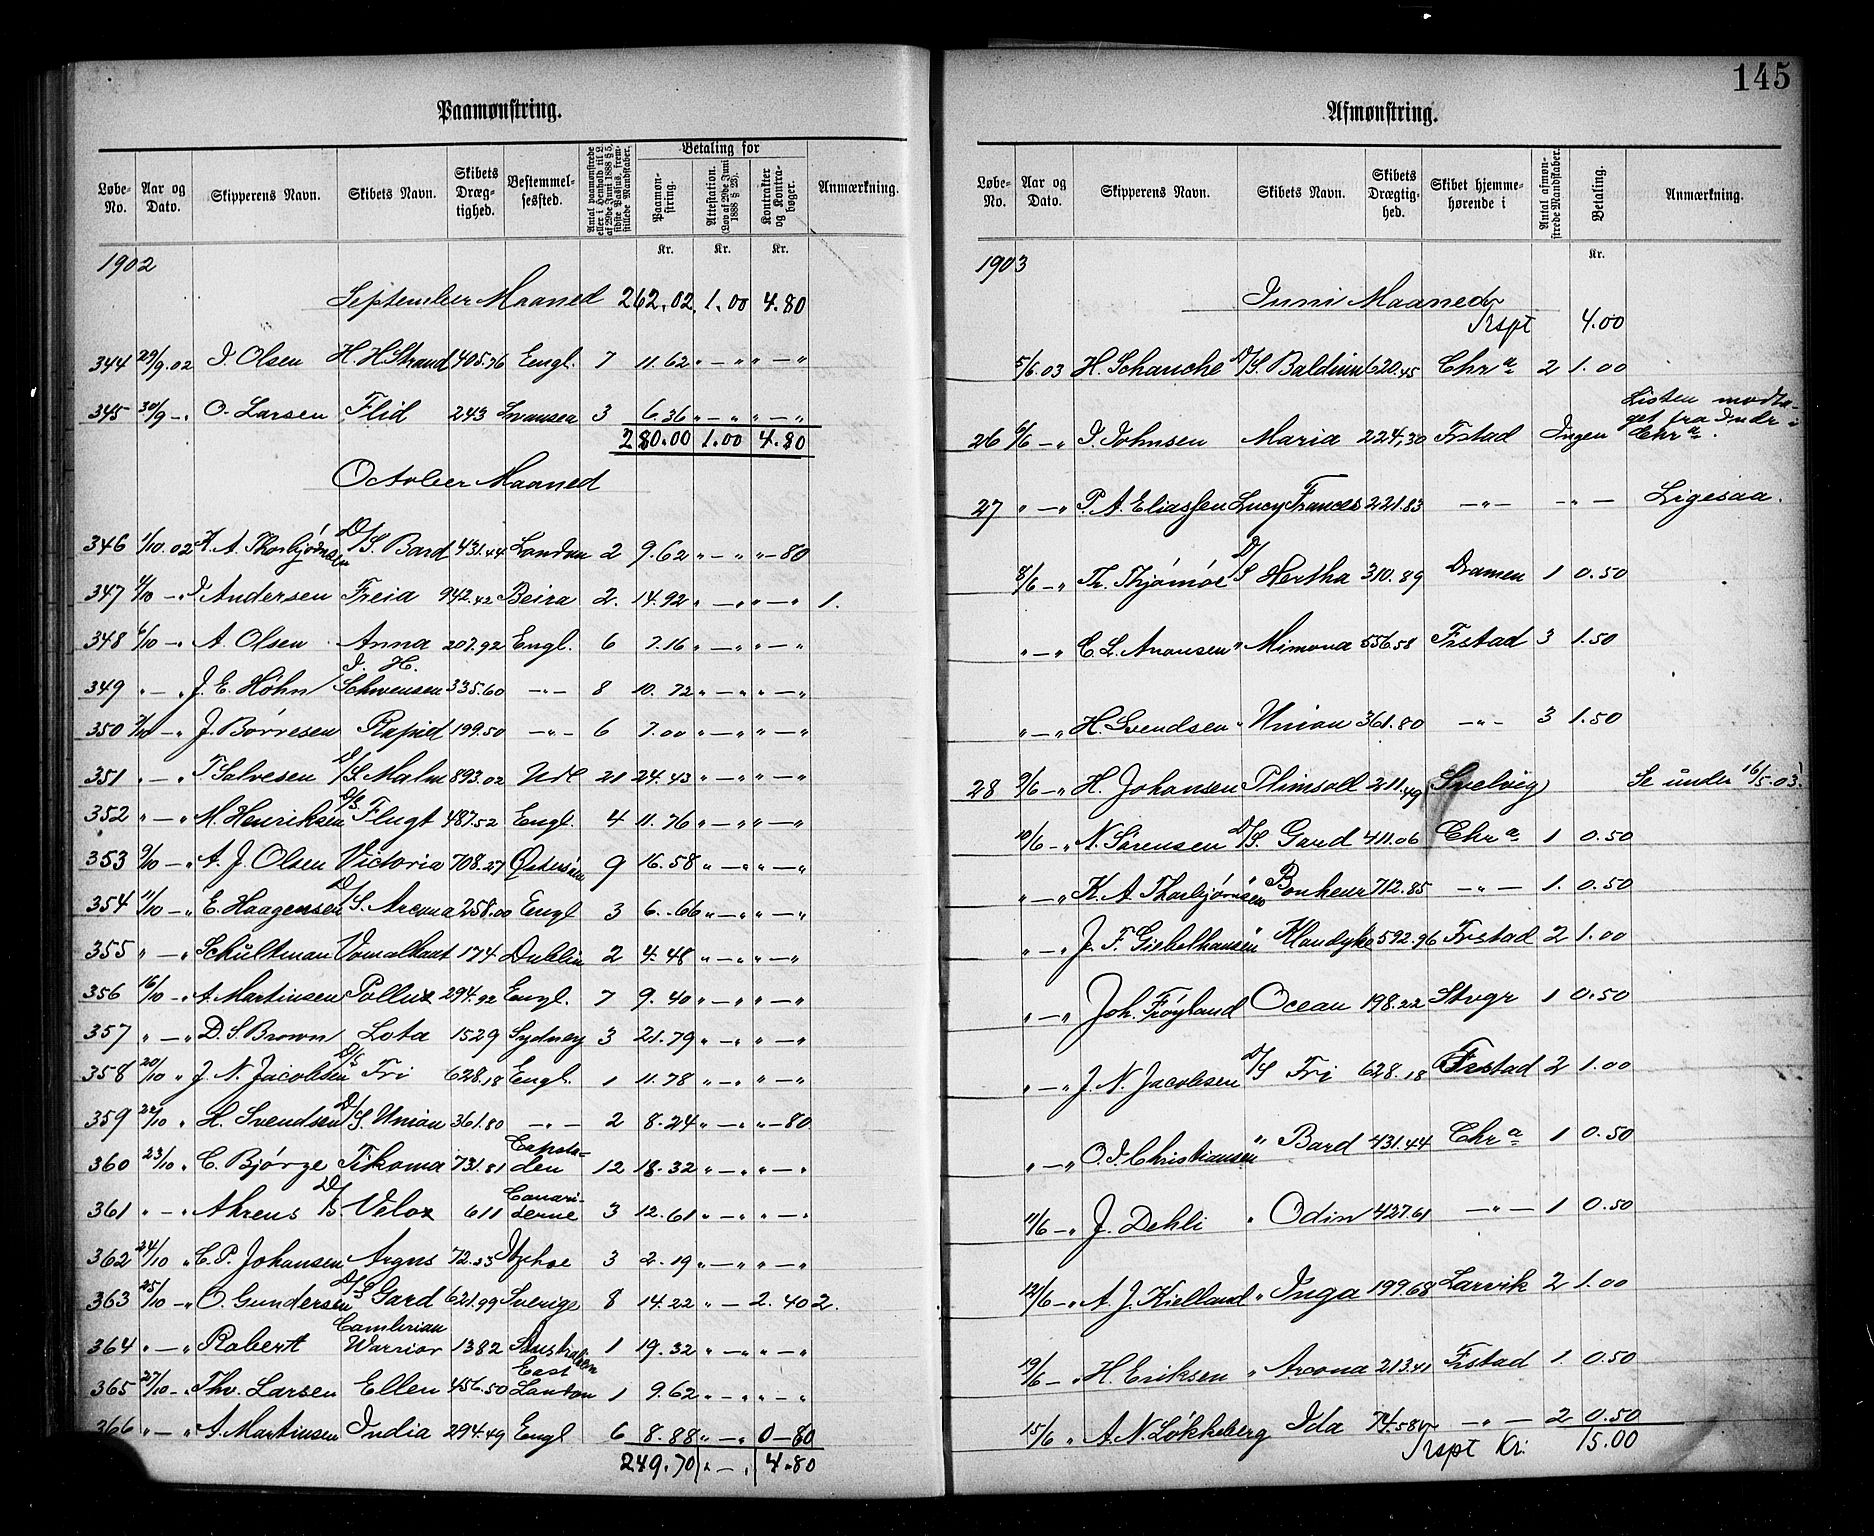 145
Paamønstring.
Løbe-No. Aar og Dato. Skipperens Navn. Skibets Navn. Skibets Dræg-tighed. Bestemmel-sessted. Betaling for Paamøn-string. Attestation. (Lov af 29de Juni 1888 § 23). Kontrakter og Kontra-bøger. Anmærkning.
Kr. Kr. Kr.
1902
September Maaned 262.02 1.00 4.80
344 29/9.02 I. Olsen H. H Strand 405.76 Engl. 7 11.62 " — " " — "
345 30/9 — " O. Larsen Flid 243 Svansea 3 6.36 " — " " — "
280.00 1.00 4.80
October Maaned
346 1/10.02 K. A. Thorbjørnsen D/S. Bard 431.44 London 2 9.62 " — " " — 80
347 4/10 — " I Andersen Freia 942.42 Beira 2. 14.92 " — " " — " 1.
348 6/10 — " A. Olsen Anna 207.92 Engl. 6 7.16 " — " " — "
349 " — " J. E. Höhn I. H. Schwensen 335.60 — " — 8 10.72 " — " " — "
350 7/10 — " J. Börresen Rapid 199.50 — " — 6 7.00 " — " " — "
351 " — " T. Salvesen D/S. Malm 893.02 Udl 21 24.43 " — " " — "
352 " — " M. Henriksen D/S. Flugt 487.52 Engl. 4 11.76 " — " " — "
353 9/10 — " A. J. Olsen Victoria 708.27 Østersøen 9 16.58 " — " " — "
354 11/10 — " E. Haagensen D/S. Arcona 258.00 Engl 3 6.66 " — " " — "
355 " — " Schültman 174 Dublin 2 4.48 " — " " — "
356 16/10 — " A. Martinsen Pollux 294.92 Engl. 7 9.40 " — " " — "
357 " — " D. S. Brown Lota 1529 Sydney 3 21.79 " — " " — "
358 20/10 " J. N. Jacobsen D/S Fri 628.18 Engl. 1 11.78 " — " " — "
359 22/10 " H. Svendsen D/S. Union 361.80 — " — 2 8.24 " — " " — 80
360 23/10 " C. Bjørge Tikoma 731.81 Capsta-den 12 18.32 " — " " — "
361 " — " Ahrens D/S. Velox 611 Canari-serne 3 12.61 " — " " — "
362 24/10 " C. P. Johansen Argus 72.33 Itzehoe 3 2.19 " — " " — "
363 25/10 — " O. Gundersen D/S Gard 621.99 Sverige 8 14.22 " — 2.40 2.
364 " — " Robert Cambrian Warrior 1382 Australien 1 19.32 " — " " — "
365 27/10 — " Thv. Larsen Ellen 456.50 East London 1 9.62 " — " " — "
366 " — " A. Martinsen India 294.49 Engl 6 8.88 " — " 0 — 80
249.70 " — " 4.80
Afmønstring.
Løbe-No. Aar og Dato. Skipperens Navn. Skibets Navn. Skibets Drægtig-hed. Skibet hjemme-hørende i Antal afmøn-strede Mandskaber. Betaling. Anmærkning.
Kr.
1903
Juni Maaned
Trspt 4.00
5/6.03 H. Schanche D/S. Balduin 620.45 Chr a 2 1.00
26 6/6 — " I. Johnsen Maria 224.30 Frstad Ingen Listen modta-get fra Indr i Chr a.
27 " — " P. A. Eliassen Lucy Frances 221.83 — " — — " — Ligesaa.
8/6 — " Th. Thjømøe D/S Hertha 310.89 Dramen 1 0.50
" — " C. L. Aronsen " Mimona 556.58 Frstad 3 1.50
" — " H. Svendsen " Union 361.80 — " — 3 1.50
28 9/6 — " H. Johansen Plimsoll 211.49 Svelvig Se under 16/5.03.
10/6 — " N. Sørensen D/S. Gard 411.06 Chr a 1 0.50
" — " K. A Thorbjørnsen " Bonheur 712.85 — " — 1. 0.50
" — " J. F. Giskelhausen " Klondyke 592.96 Frstad 2 1.00
" — " Joh. Frøyland Ocean 198.22 Stvgr 1 0.50
" — " J. N. Jacobsen D/S Fri 628.18 Frstad 2 1.00
" — " O. I. Christiansen " Bard 431.44 Chr a 1 0.50
11/6 — " J. Dehli " Odin 427.61 — " — 1 0.50
12/6 — " A. J. Kielland " Inga 199.68 Larvik 2 1.00
19/6 — " H. Eriksen " Arcona 213.41 Frstad 1. 0.50
15/6 " A. N. Løkkeberg Ida 74.58 — " — 2 0.50
Trspt Kr. 15.00